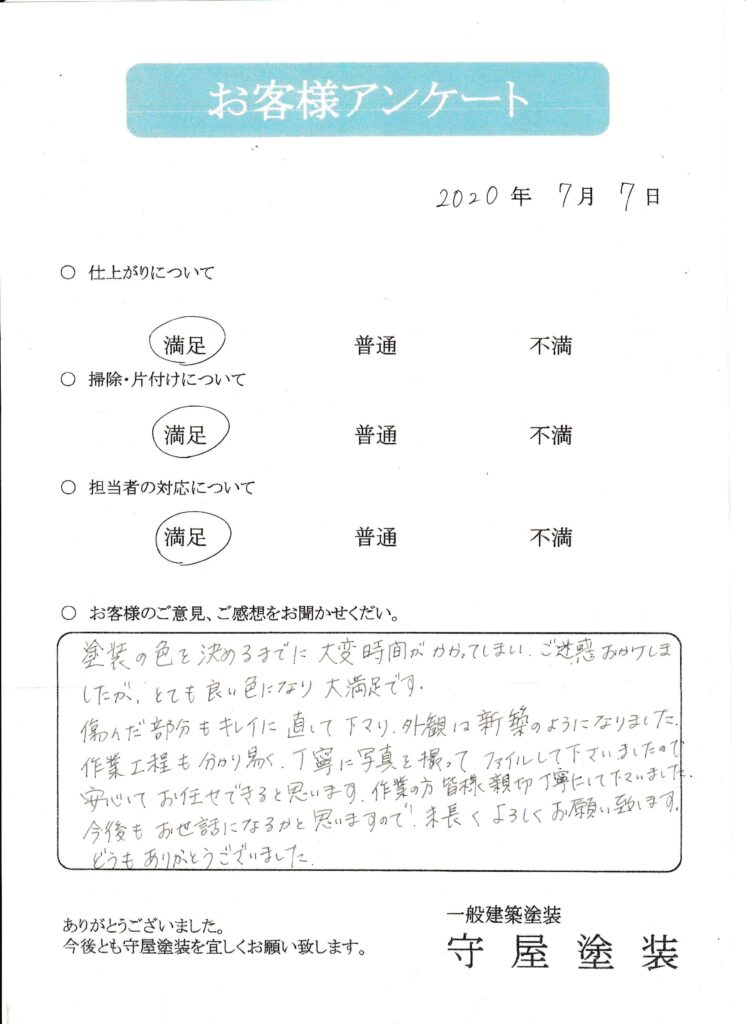 お客様アンケート
2020年 7月 7日
○ 仕上がりについて
満足 普通 不満
○ 掃除・片付けについて
満足 普通 不満
○ 担当者の対応について
満足 普通 不満
○ お客様のご意見、ご感想をお聞かせくだい。
塗装の色を決めるまでに大変時間がかかってしまい、ご迷惑おかけしま
したが、とても良い色になり大満足です。
傷んだ部分もキレイに直して下さり、外観は新築のようになりました。
作業工程も分かり易く、丁寧に写真を撮ってファイルして下さいましたので
安心してお任せできると思います。作業の方皆様、親切丁寧にして下さいました。
今後もお世話になるかと思いますので、末長くよろしくお願い致します。
どうもありがとうございました。
ありがとうございました。
今後とも守屋塗装を宜しくお願い致します。
一般建築塗装
守屋塗装